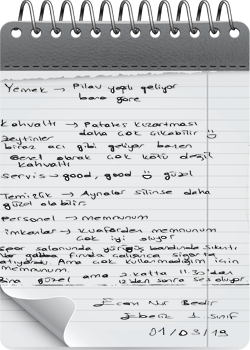 Yemek → Pilav yaşlı geliyor
bana göre
Kahvaltı → Patates kızartması
daha çok çıkabilir
Zeytinler
biraz acı gibi geliyor bazen
Genel olarak çok kötü değil
kahvaltı
Servis → good, good güzel
Temizlik → Aynalar silinse daha
güzel olabilir
Personel → memnunum
imkanlar → kuaförden memnunum
çok iyi oluyor
Spor salonunda yürüyüş bandında sıkıntı
Var galiba fırında çalışınca sigorta
atıyordu. Ama çok kullanmadığım için
memnunum
Bina güzel ama 2. katta 11.30'dan
12'den sonra ses oluyor
Ecan Nur Bedir
Ebelik 1. sınıf
01/03/19